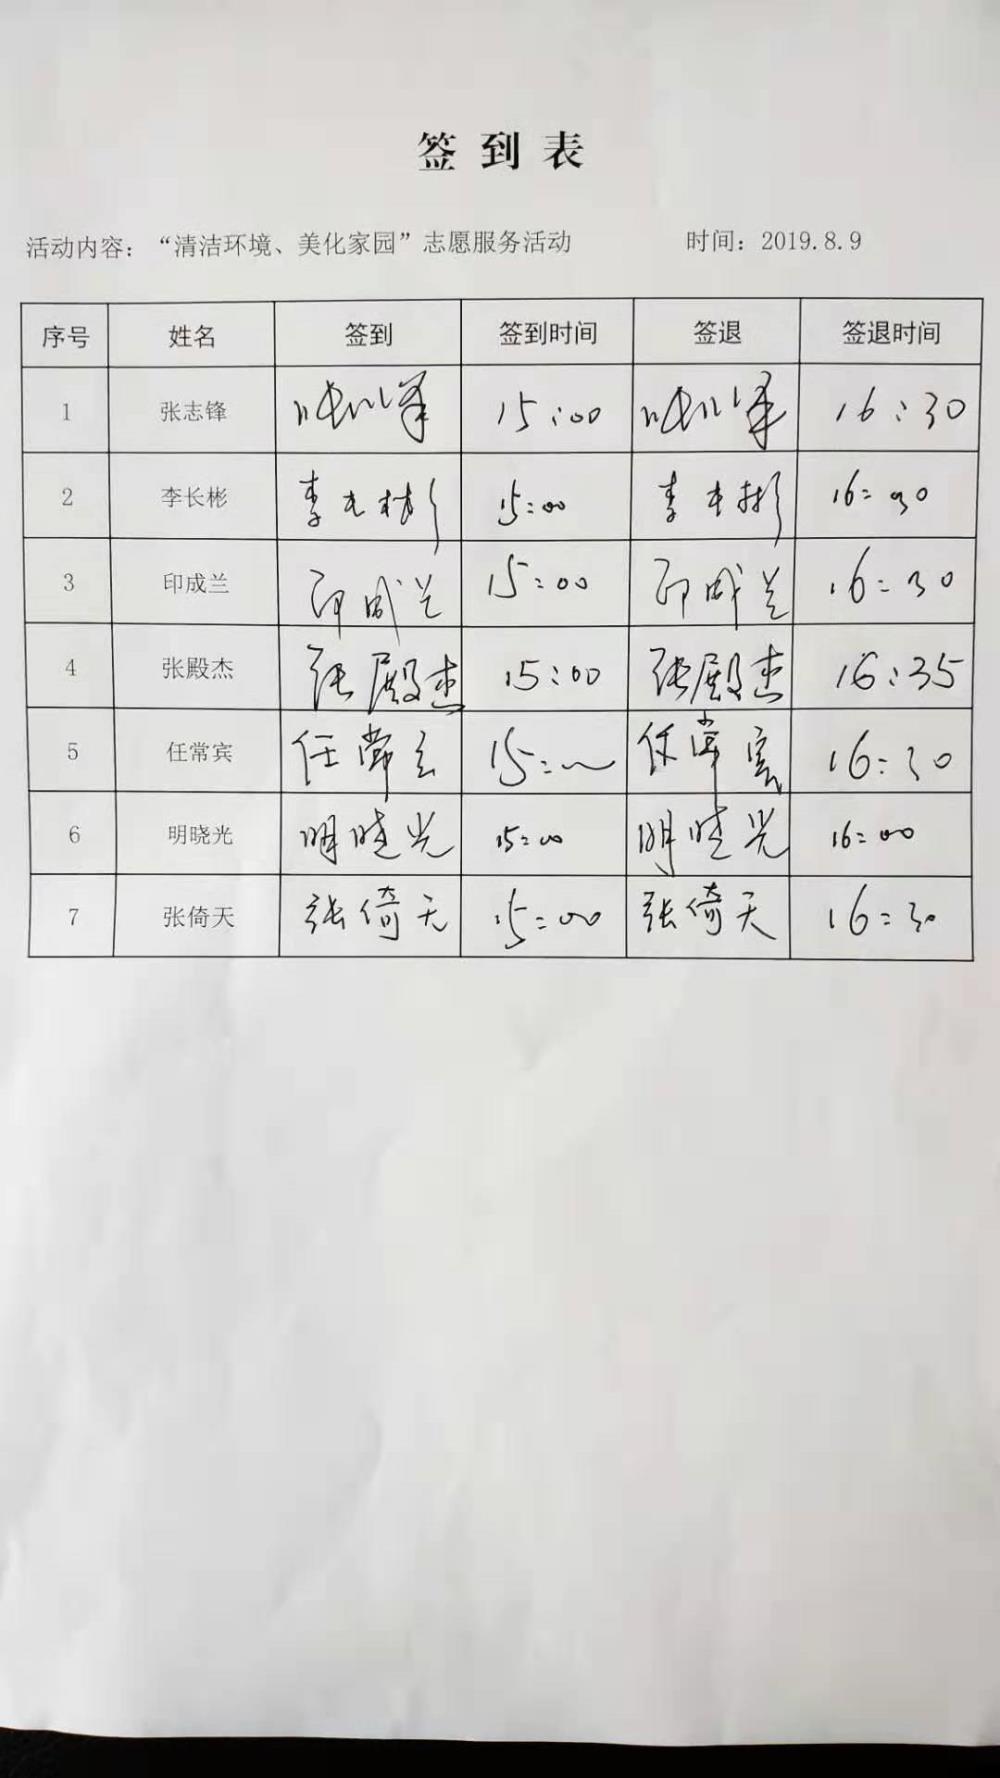 签到表
活动内容：“清洁环境、美化家园”志愿服务活动 时间：2019.8.9
序号 姓名 签到 签到时间 签退 签退时间
1 张志锋 张志锋 15:00 张志锋 16:30
2 李长彬 李长彬 15:00 李长彬 16:30
3 印成兰 印成兰 15:00 印成兰 16:30
4 张殿杰 张殿杰 15:00 张殿杰 16:35
5 任常宾 任常宾 15:00 任常宾 16:30
6 明晓光 明晓光 15:00 明晓光 16:00
7 张倚天 张倚天 15:00 张倚天 16:30